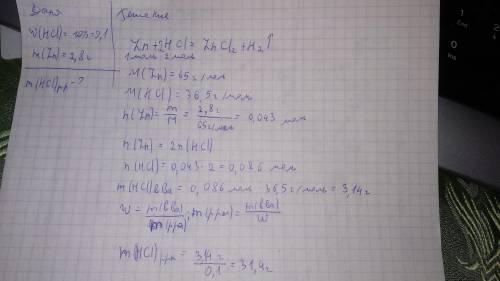 Дано
Решение
W(HCl)=10%=0,1
m(Zn)=2,8г
m(HCl)рр-?
Zn+2HCl=ZnCl2+H2↑
1моль 2моль
M(Zn)=65г/моль
M(HCl)=36,5г/моль
n(Zn)=m/M=2,8г/65г/моль=0,043 моль
n(Zn)=2n(HCl)
n(HCl)=0,043·2=0,086 моль
m(HCl)вва=0,086 моль·36,5г/моль=3,14г
w=m(вва)/m(рра); m(рра)=m(вва)/w
m(HCl)рра=3,14г/0,1=31,4г
1
End
0
Ins